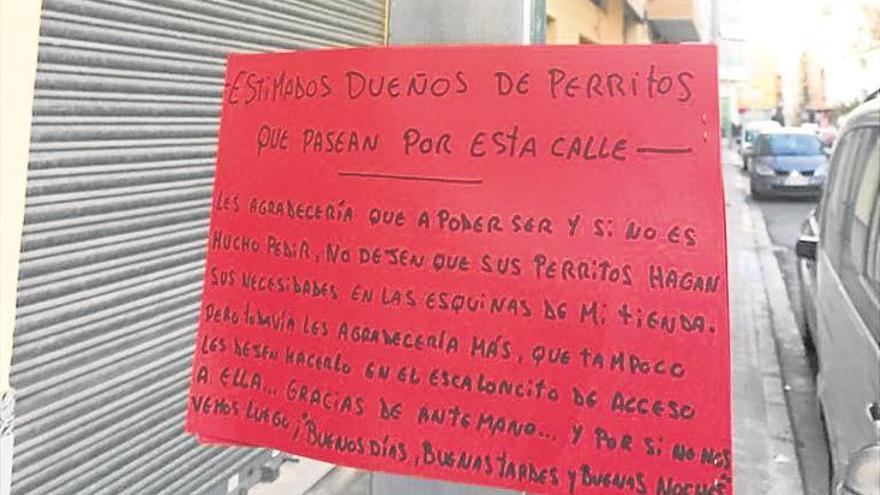 ESTIMADOS DUEÑOS DE PERRITOS
QUE PASEAN POR ESTA CALLE —
LES AGRADECERÍA QUE A PODER SER Y SI NO ES
MUCHO PEDIR, NO DEJEN QUE SUS PERRITOS HAGAN
SUS NECESIDADES EN LAS ESQUINAS DE MI TIENDA.
PERO TODAVÍA LES AGRADECERÍA MÁS, QUE TAMPOCO
LES DEJEN HACERLO EN EL ESCALONCITO DE ACCESO
A ELLA... GRACIAS DE ANTEMANO... Y POR SI NO NOS
VEMOS LUEGO, "BUENOS DÍAS, BUENAS TARDES Y BUENAS NOCHES"